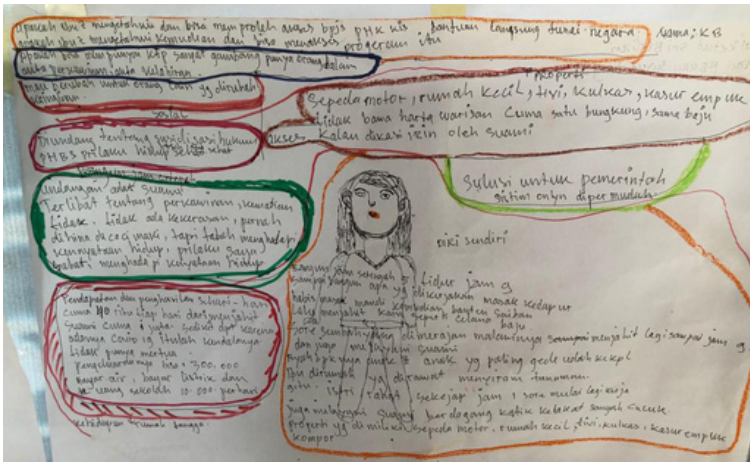 Nama: KB
apakah ibu2 mengetahui dan bisa memproleh akses bpjs PHK kis bantuan langsung tunai negara
apakah ibu2 mengetahui kemudahan dan bisa mengakses program itu
apakah bisa mempunyai ktp sangat gambang punya orang dalam
akta perkawinan akta kelahiran
mau perubah untuk orang yg dirubah
sosial
Diundang tentang sosialisasi hukum
PHBS prilaku hidup sehat
undangan adat suami
Terlibat tentang perkawinan, kematian
tidak. tidak ada kekerasan, pernah
dihina da caci maki, tapi tabah menghadapi
kenyataan hidup, prilaku saya
sabat, menghadapi kenyataan hidup
Pendapatan dan penghasilan sehari-hari
cuma 40 ribu tiap hari dari menjahit
suami cuma 1 juta. sedikit dpt karena
adanya Covid 19 itulah kendalanya
tidak punya mertua.
pengeluarannya bisa 300.000
bayar air, bayar listrik dan
uang sekolah 10.000 perhari
kehidupan rumah tangga.
properti
sepeda motor, rumah kecil, tivi, kulkas, kasur empuk
tidak bawa harta warisan cuma satu bungkung, sama baju
akses kalau dikasi izin oleh suami
Sulusi untuk pemerintah
sistim onlyn dipermudah
diki sendiri
bangun jam setengah 6 tidur jam 9
sampai bangun apa yg dikerjakan masak kedapur
habis masak mandi kebutuhan banten saiban
lalu menjahit kain seperti celana baju.
sore sembahyang dimerajan malamnya sampai menjahit lagi sampai jam 9
dan juga melayani suami
anak yg paling gede udah kekpl
ibu dirumah ya dirawat menyiram tanaman.
gitu. istri rahat sekejap jam 1 sore mulai lagi kerja
juga melayani suami berdagang katik kelakat sanyah cucuk.
properti yg di miliki sepeda motor, rumah kecil, tivi, kulkas, kasur empuk
kompor